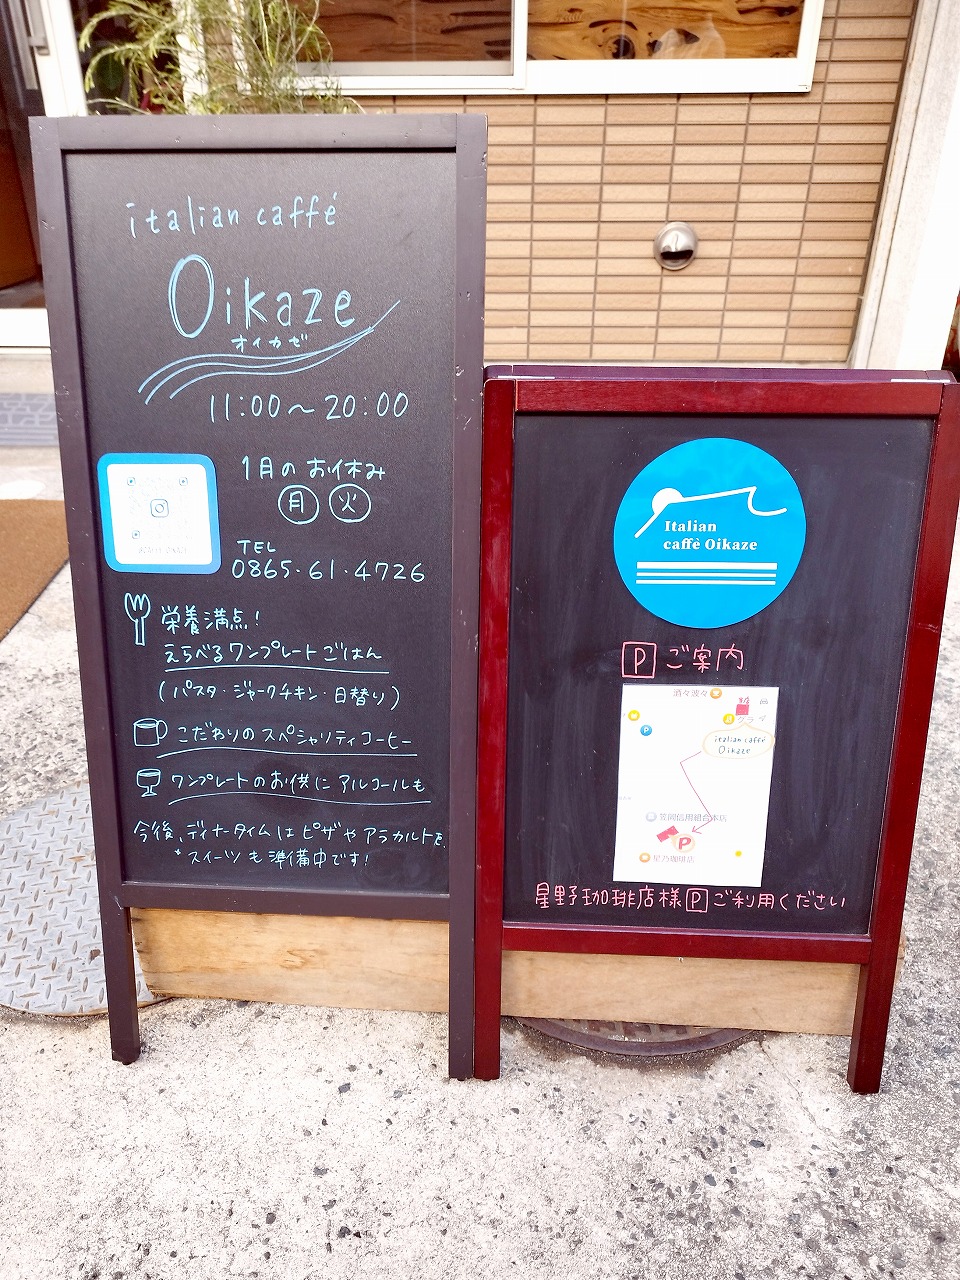 italian caffé
Oikaze
オイカゼ
11:00～20:00
1月のお休み
月 火
TEL
0865・61・4726
栄養満点!
えらべるワンプレートごはん
(パスタ・ジャークチキン・日替り)
こだわりのスペシャリティコーヒー
ワンプレートのお供にアルコールも
今後、ディナータイムはピザやアラカルトを。
*スイーツも準備中です!
Italian
caffè Oikaze
P ご案内
酒々波々
P
italian caffé
Oikaze
笠岡信用組合本店
P
星乃珈琲店
星野珈琲店様 P ご利用ください